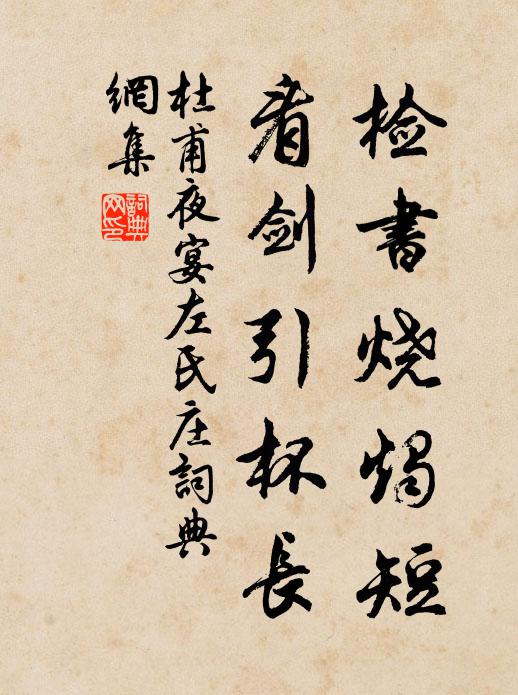 检书烧烛短
看剑引杯长
杜甫夜宴左氏庄詞典
網集
詞典网印